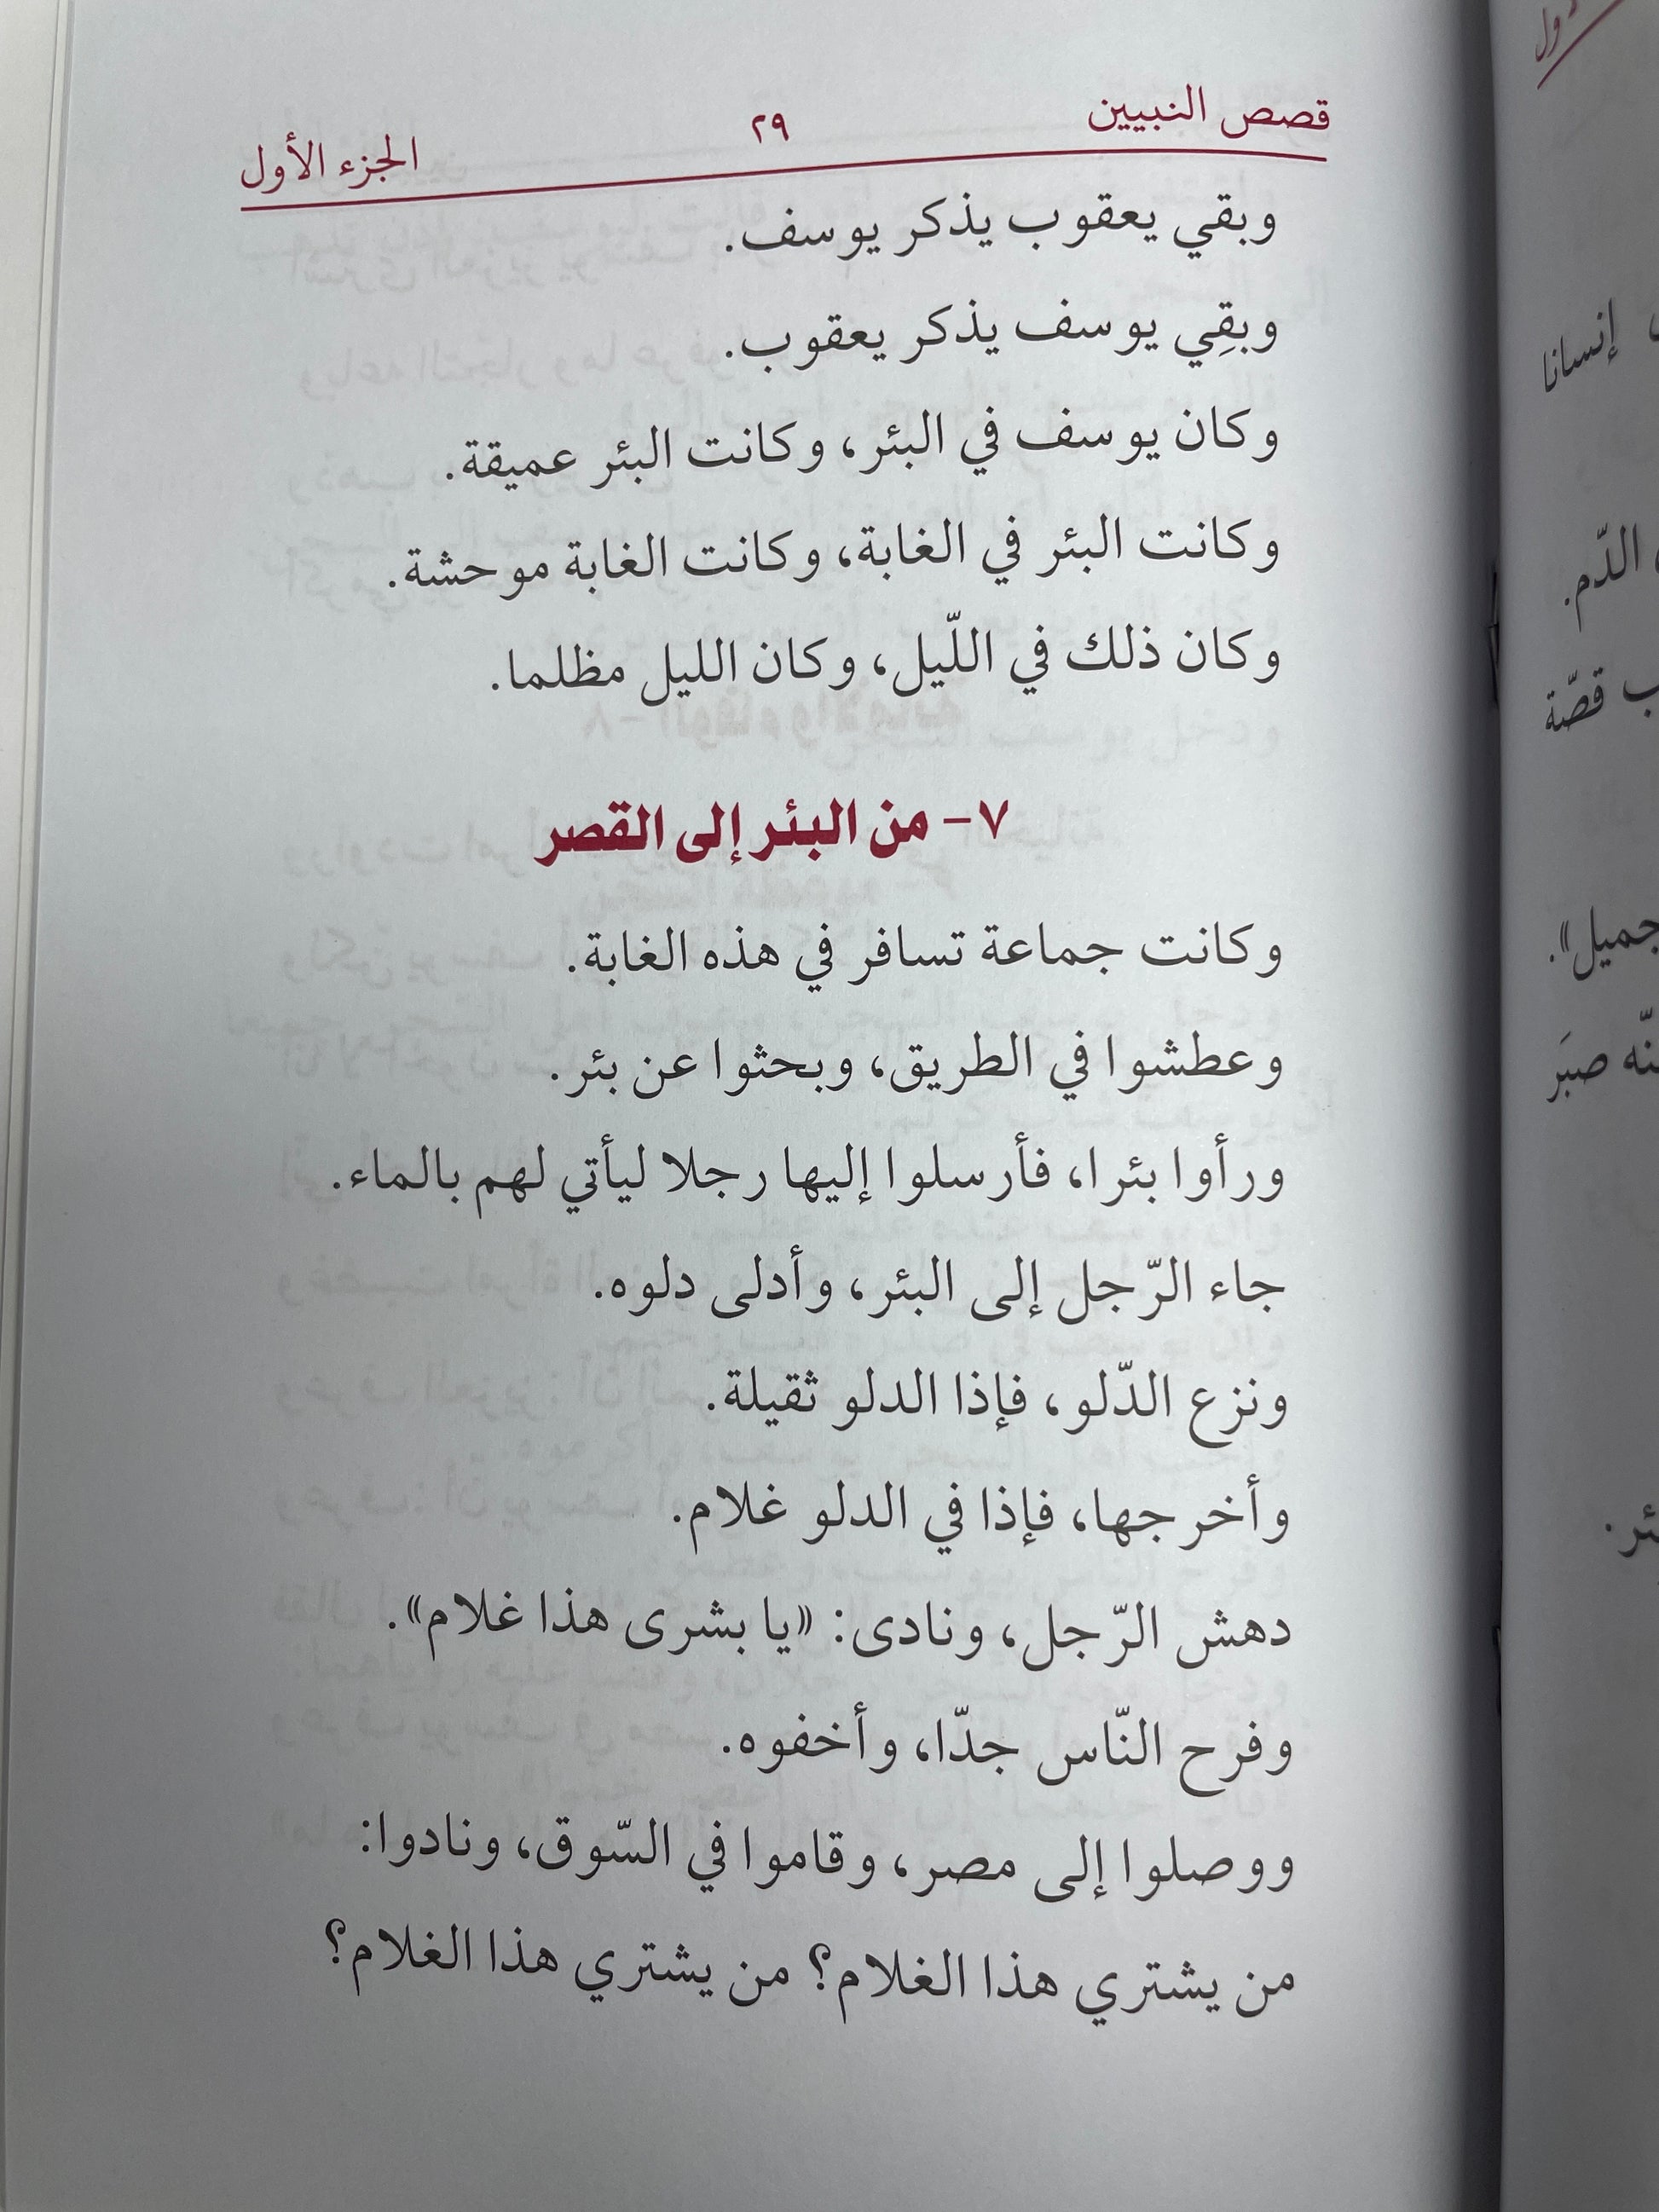 قصص النبيين ٢٩ الجزء الأول
وبقي يعقوب يذكر يوسف.
وبقِي يوسف يذكر يعقوب.
وكان يوسف في البئر، وكانت البئر عميقة.
وكانت البئر في الغابة، وكانت الغابة موحشة.
وكان ذلك في اللّيل، وكان الليل مظلما.
٧- من البئر إلى القصر
وكانت جماعة تسافر في هذه الغابة.
وعطشوا في الطريق، وبحثوا عن بئر.
ورأوا بئرا، فأرسلوا إليها رجلا ليأتي لهم بالماء.
جاء الرّجل إلى البئر، وأدلى دلوه.
ونزع الدّلو، فإذا الدلو ثقيلة.
وأخرجها، فإذا في الدلو غلام.
دهش الرّجل، ونادى: «يا بشرى هذا غلام».
وفرح النّاس جدّا، وأخفوه.
ووصلوا إلى مصر، وقاموا في السّوق، ونادوا:
من يشتري هذا الغلام؟ من يشتري هذا الغلام؟
إنسانا
الدّم.
قصّة
جميل».
صبَر